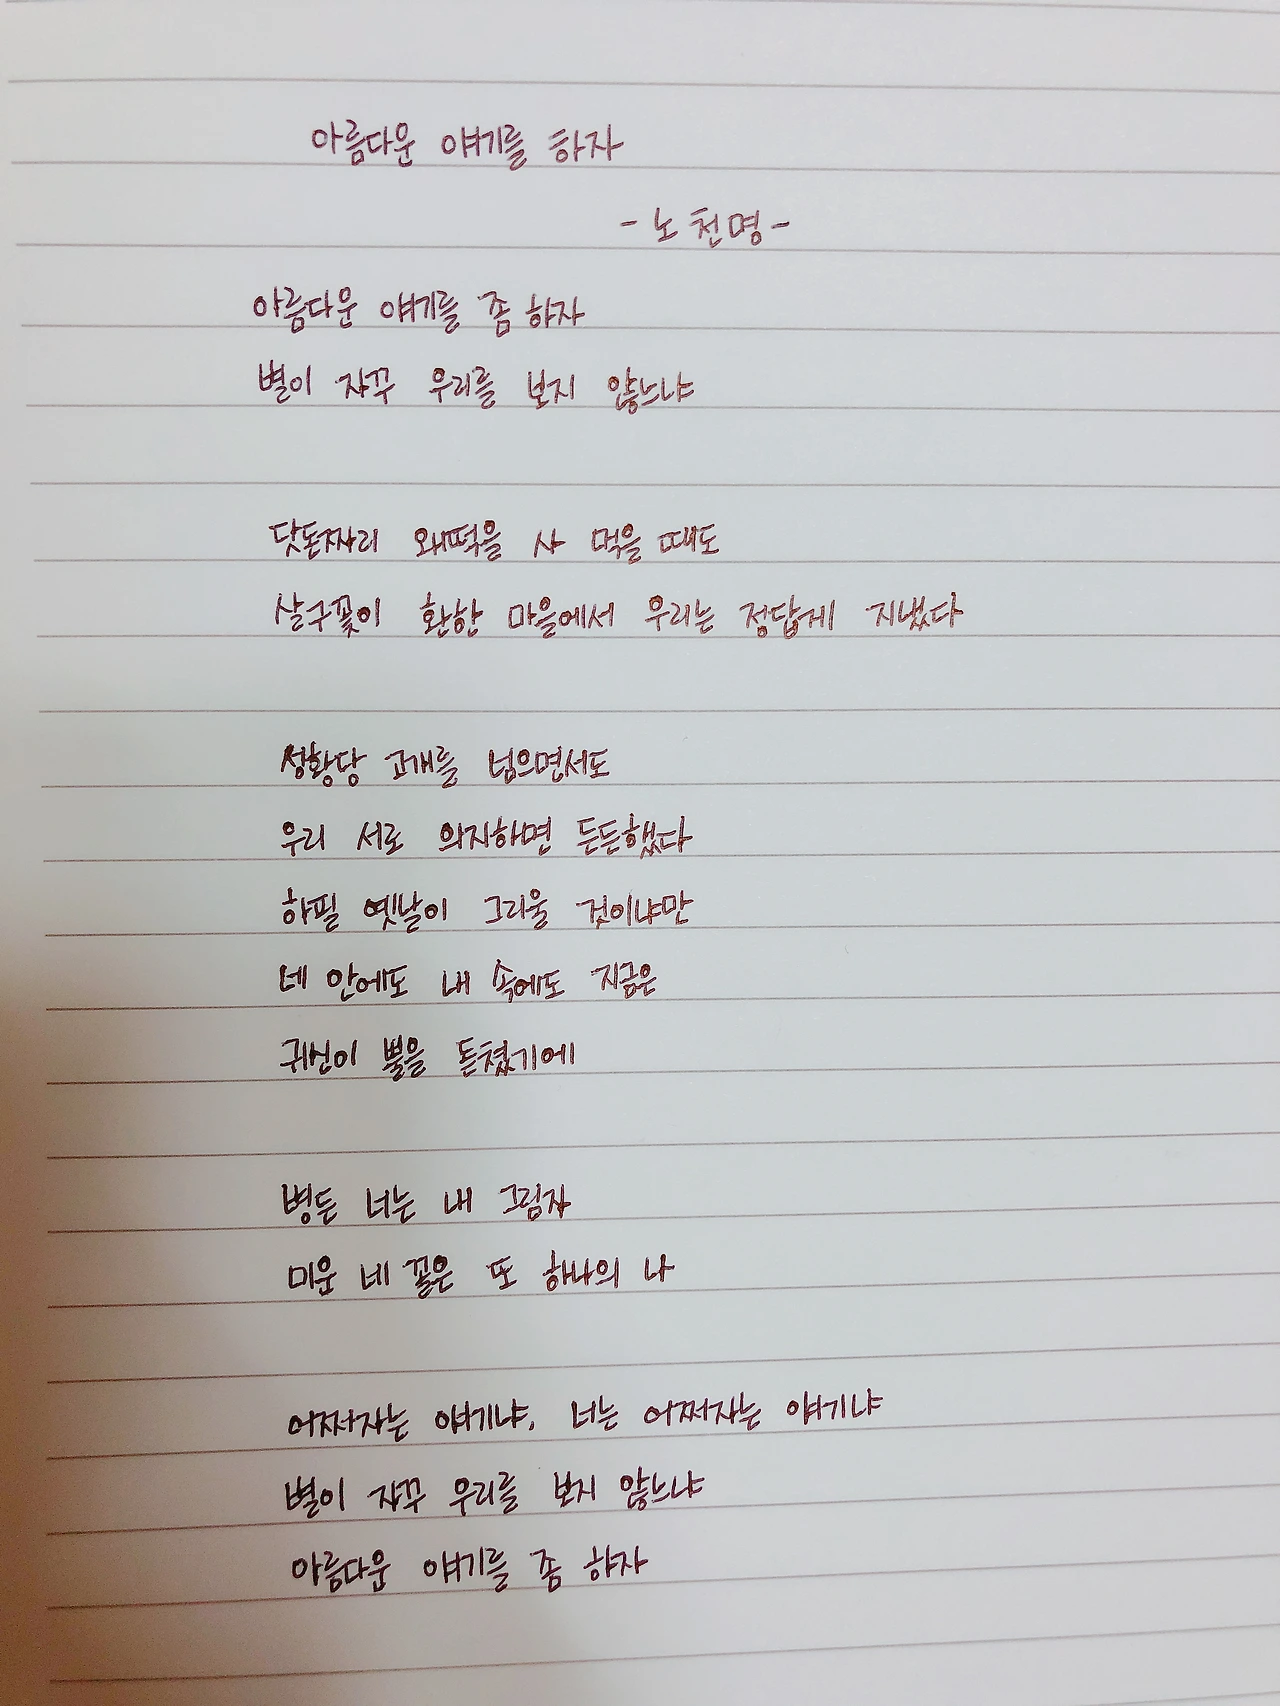 아름다운 얘기를 하자
- 노천명 -
아름다운 얘기를 좀 하자
별이 자꾸 우리를 보지 않느냐
닷돈짜리 왜떡을 사 먹을 때도
살구꽃이 환한 마을에서 우리는 정답게 지냈다
성황당 고개를 넘으면서도
우리 서로 의지하면 든든했다
하필 옛날이 그리울 것이냐만
네 안에도 내 속에도 지금은
귀신이 뿔을 돋쳤기에
병든 너는 내 그림자
미운 네 꼴은 또 하나의 나
어쩌자는 얘기냐, 너는 어쩌자는 얘기냐
별이 자꾸 우리를 보지 않느냐
아름다운 얘기를 좀 하자